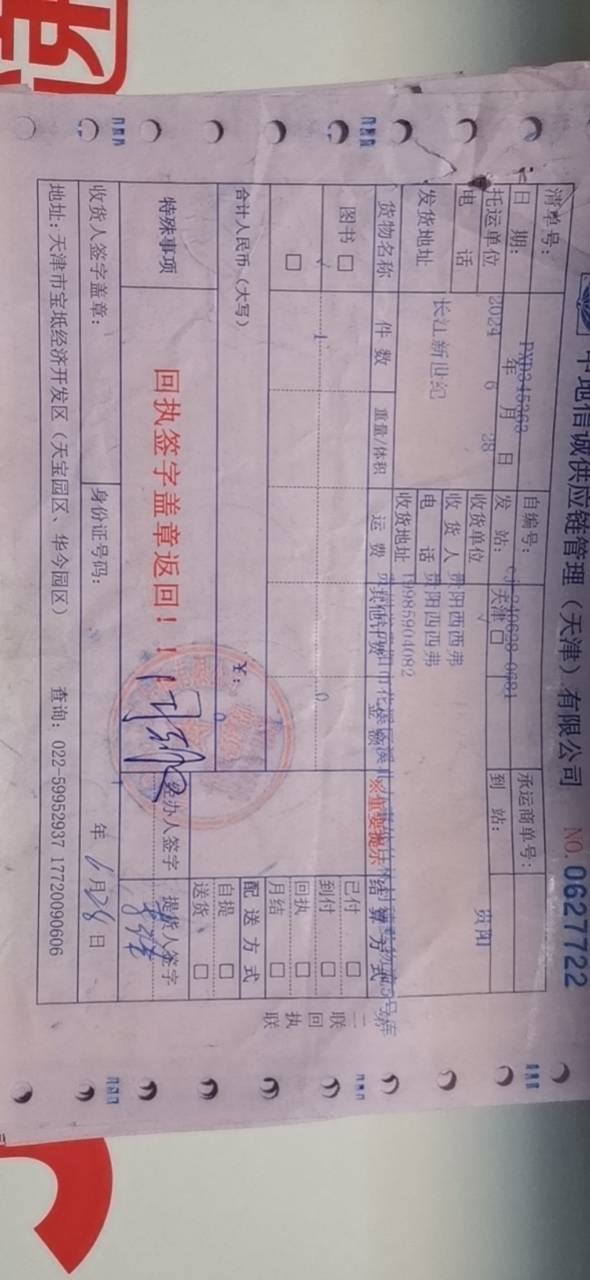 中地信诚供应链管理（天津）有限公司 NO. 0627722
清单号： PXD315263 自编号： 承运商单号：
日 期： 2024 年 6 月 28 日 发 站： 天津□ 到 站： 贵阳
托运单位 收货单位 贵阳西西弗
电 话 收 货 人 贵阳西西弗
发货地址 长江新世纪 电 话 19985904082
收货地址
货物名称 件 数 重量/体积 运 费 其他计费 金 额 ※重要提示 结 算 方 式
图书 □ 1 0 已付 □
到付 □
□ 回执 □
月结 □
合计人民币（大写） ￥： 0 配 送 方 式
自提 □
送货 □
特殊事项 回执签字盖章返回！！！ 经办人签字 提货人签字
收货人签字盖章： 身份证号码： 年 6 月 28 日
地址：天津市宝坻经济开发区（天宝园区、华今园区） 查询：022-59952937 17720090606
二联回执联